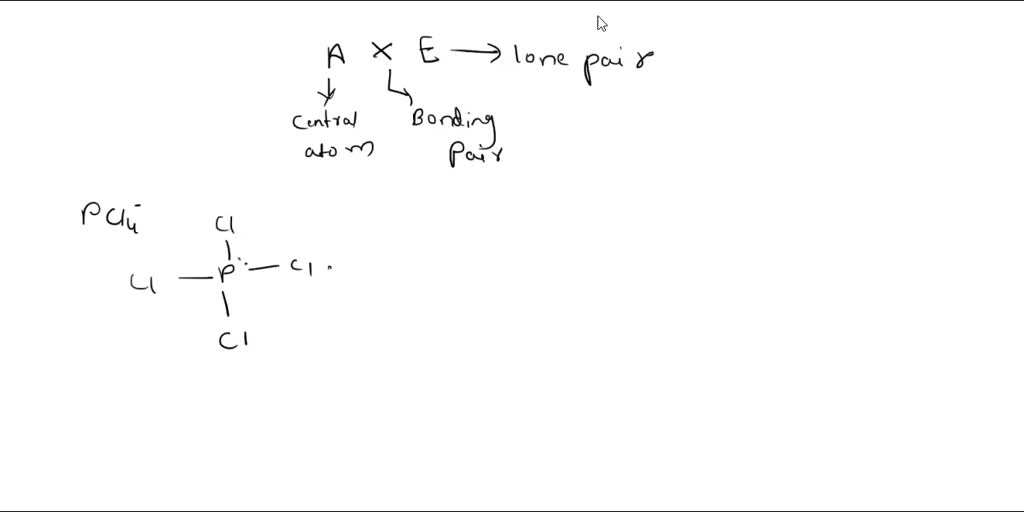 A X E → lone pair
Central atom
Bonding Pair
PCl4-
Cl
Cl — P — Cl
Cl